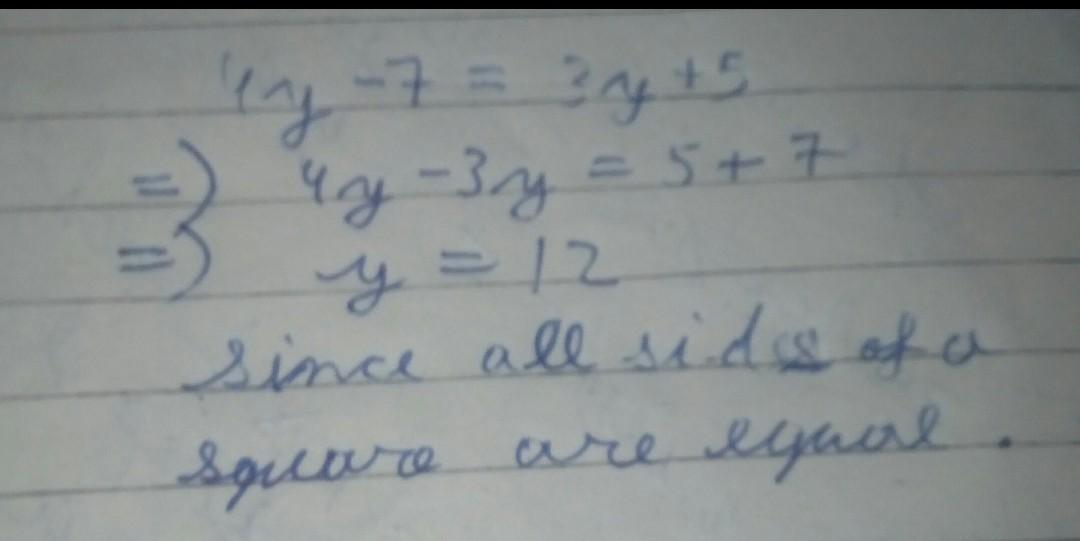 4y - 7 = 3y + 5
=) 4y - 3y = 5 + 7
=) y = 12
since all sides of a
square are equal .